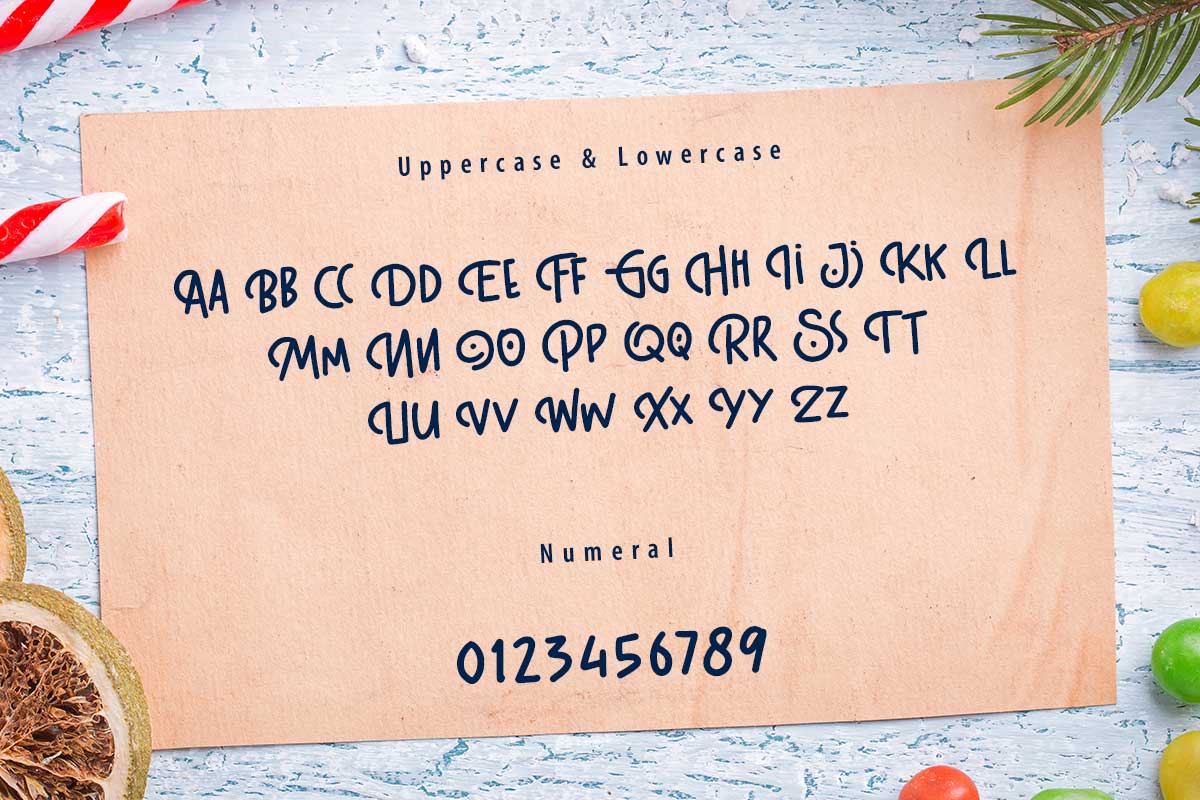 Uppercase & Lowercase
Aa Bb Cc Dd Ee Ff Gg Hh Ii Jj Kk Ll
Mm Nn Oo Pp Qq Rr Ss Tt
Uu Vv Ww Xx Yy Zz
Numeral
0123456789